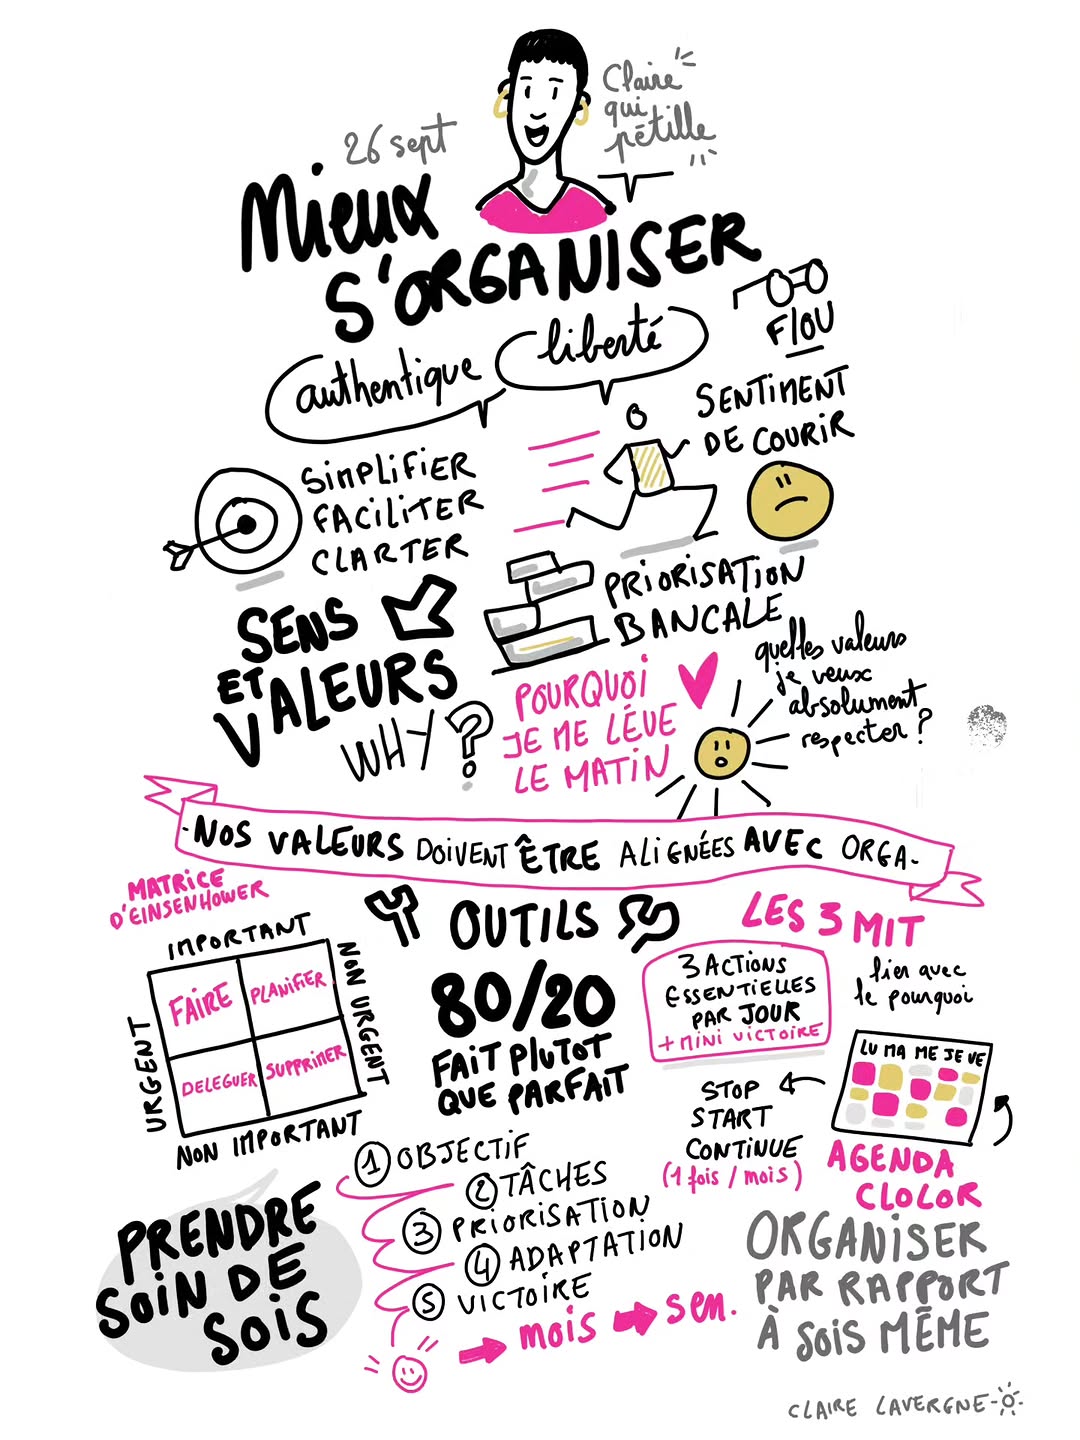 26 sept
Claire
qui
pétille
Mieux
S'ORGANISER
authentique
liberté
FLOU
SENTIMENT
DE COURIR
SIMPLIFIER
FACILITER
CLARTER
PRIORISATION
BANCALE
SENS
ET
VALEURS
WHY?
POURQUOI
JE ME LÈVE
LE MATIN
quelles valeurs
je veux
absolument
respecter?
-NOS VALEURS DOIVENT ÊTRE ALIGNÉES AVEC ORGA-
MATRICE
D'EINSENHOWER
IMPORTANT
NON URGENT
URGENT
NON IMPORTANT
FAIRE
PLANIFIER
DELEGUER
SUPPRIMER
OUTILS
80/20
FAIT PLUTOT
QUE PARFAIT
LES 3 MIT
3 ACTIONS
ESSENTIELLES
PAR JOUR
+ MINI VICTOIRE
lien avec
le pourquoi
LU MA ME JE VE
STOP
START
CONTINUE
(1 fois / mois)
AGENDA
CLOLOR
1 OBJECTIF
2 TÂCHES
3 PRIORISATION
4 ADAPTATION
5 VICTOIRE
mois
sem.
PRENDRE
SOIN DE
SOIS
ORGANISER
PAR RAPPORT
À SOIS MÊME
CLAIRE LAVERGNE